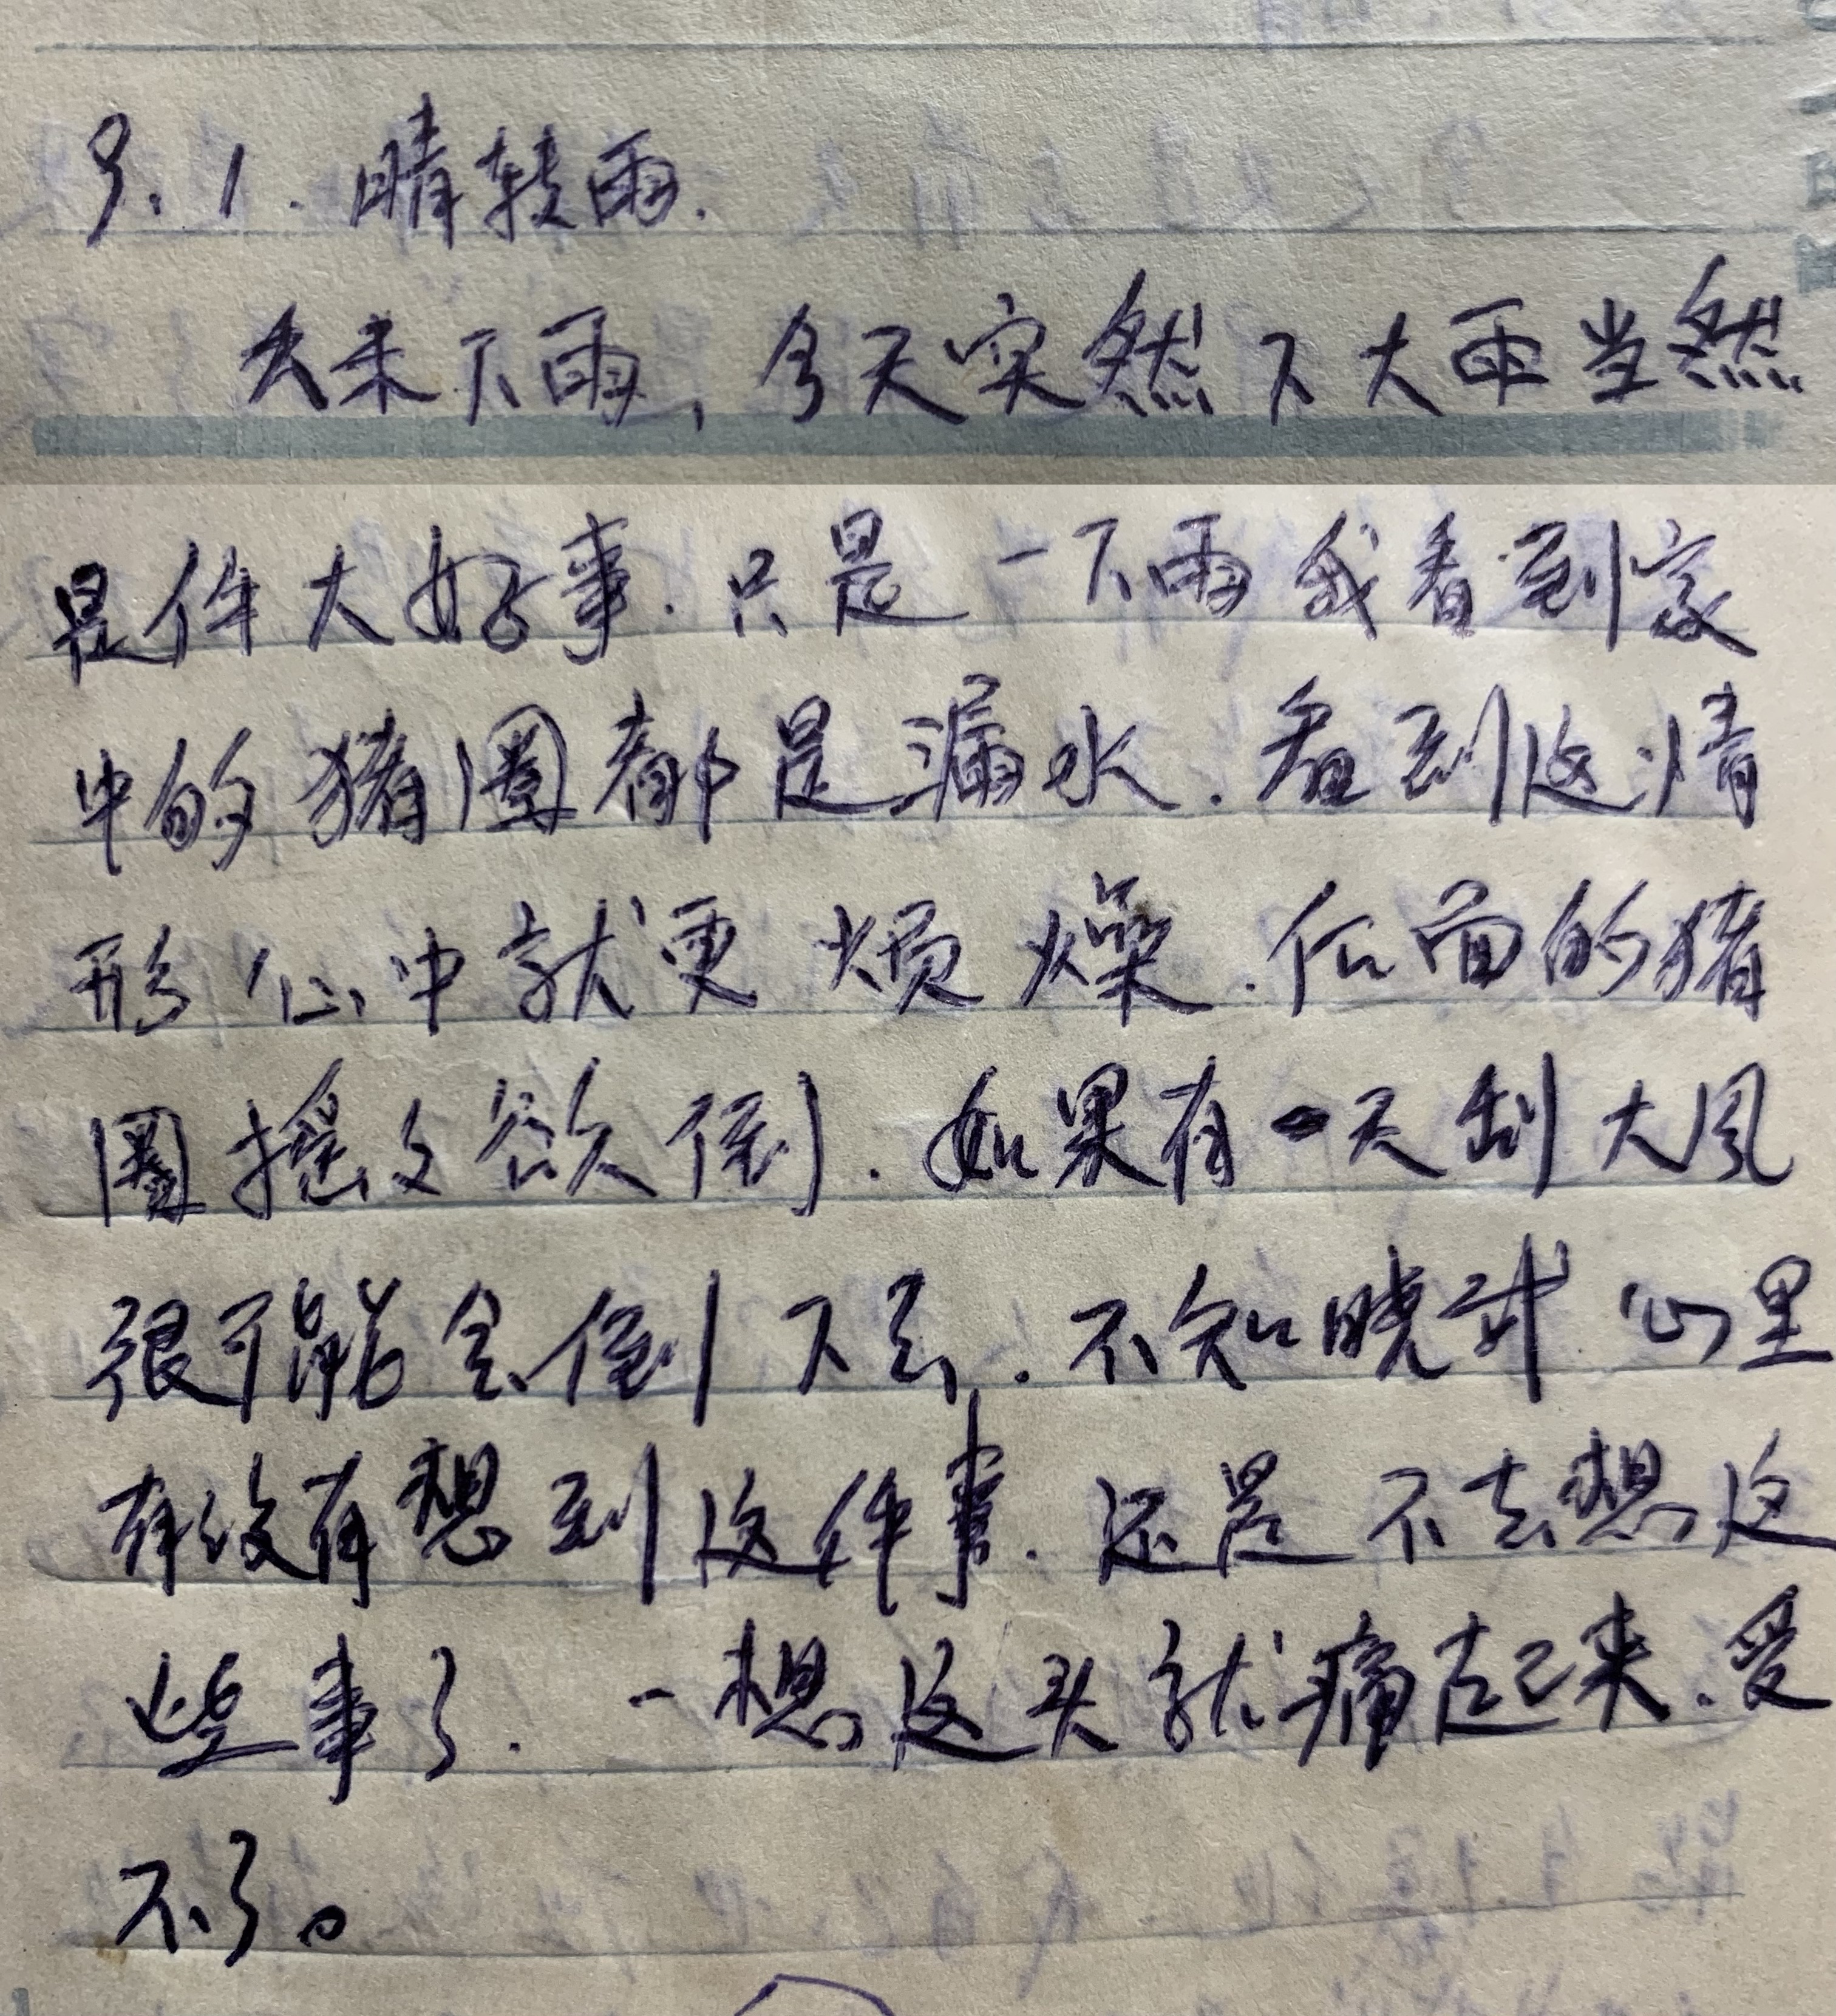 9.1.晴转雨.
久未下雨,今天突然下大雨当然
是件大好事.只是一下雨我看到家
中的猪圈都是漏水.看到这情
形心中就更烦燥.后面的猪
圈摇々欲倒.如果有一天刮大风
很可能会倒下去.不知晓 心里
有没有想到这件事.还是不去想这
些事了.一想这头就痛起来.受
不了。